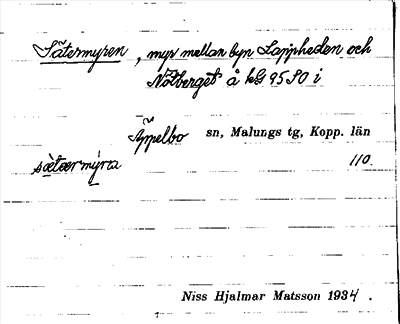 Sätermyren, myr mellan byn Lappheden och
Nölberget å kbl 95 SO i
Äppelbo sn, Malungs tg, Kopp. län
sætærmýra 110.
Niss Hjalmar Matsson 1934.